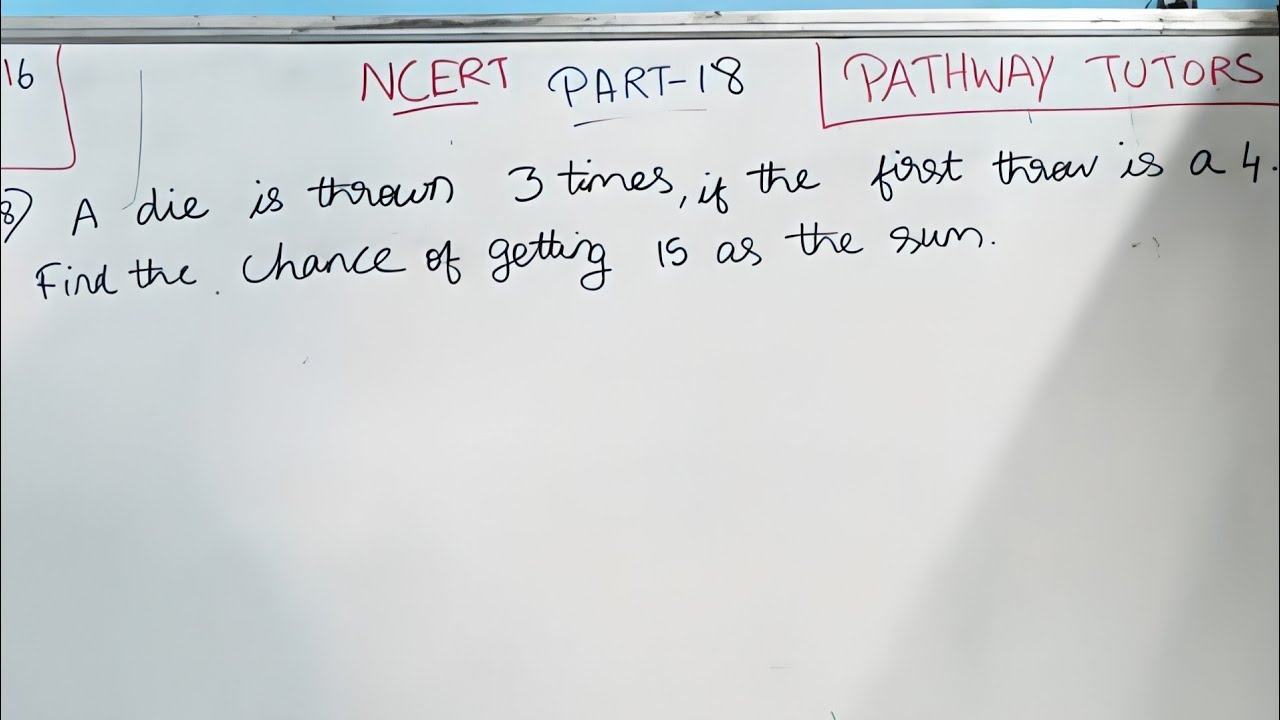 16
NCERT PART-18
PATHWAY TUTORS
8) A die is thrown 3 times, if the first throw is a 4.
Find the chance of getting 15 as the sum.